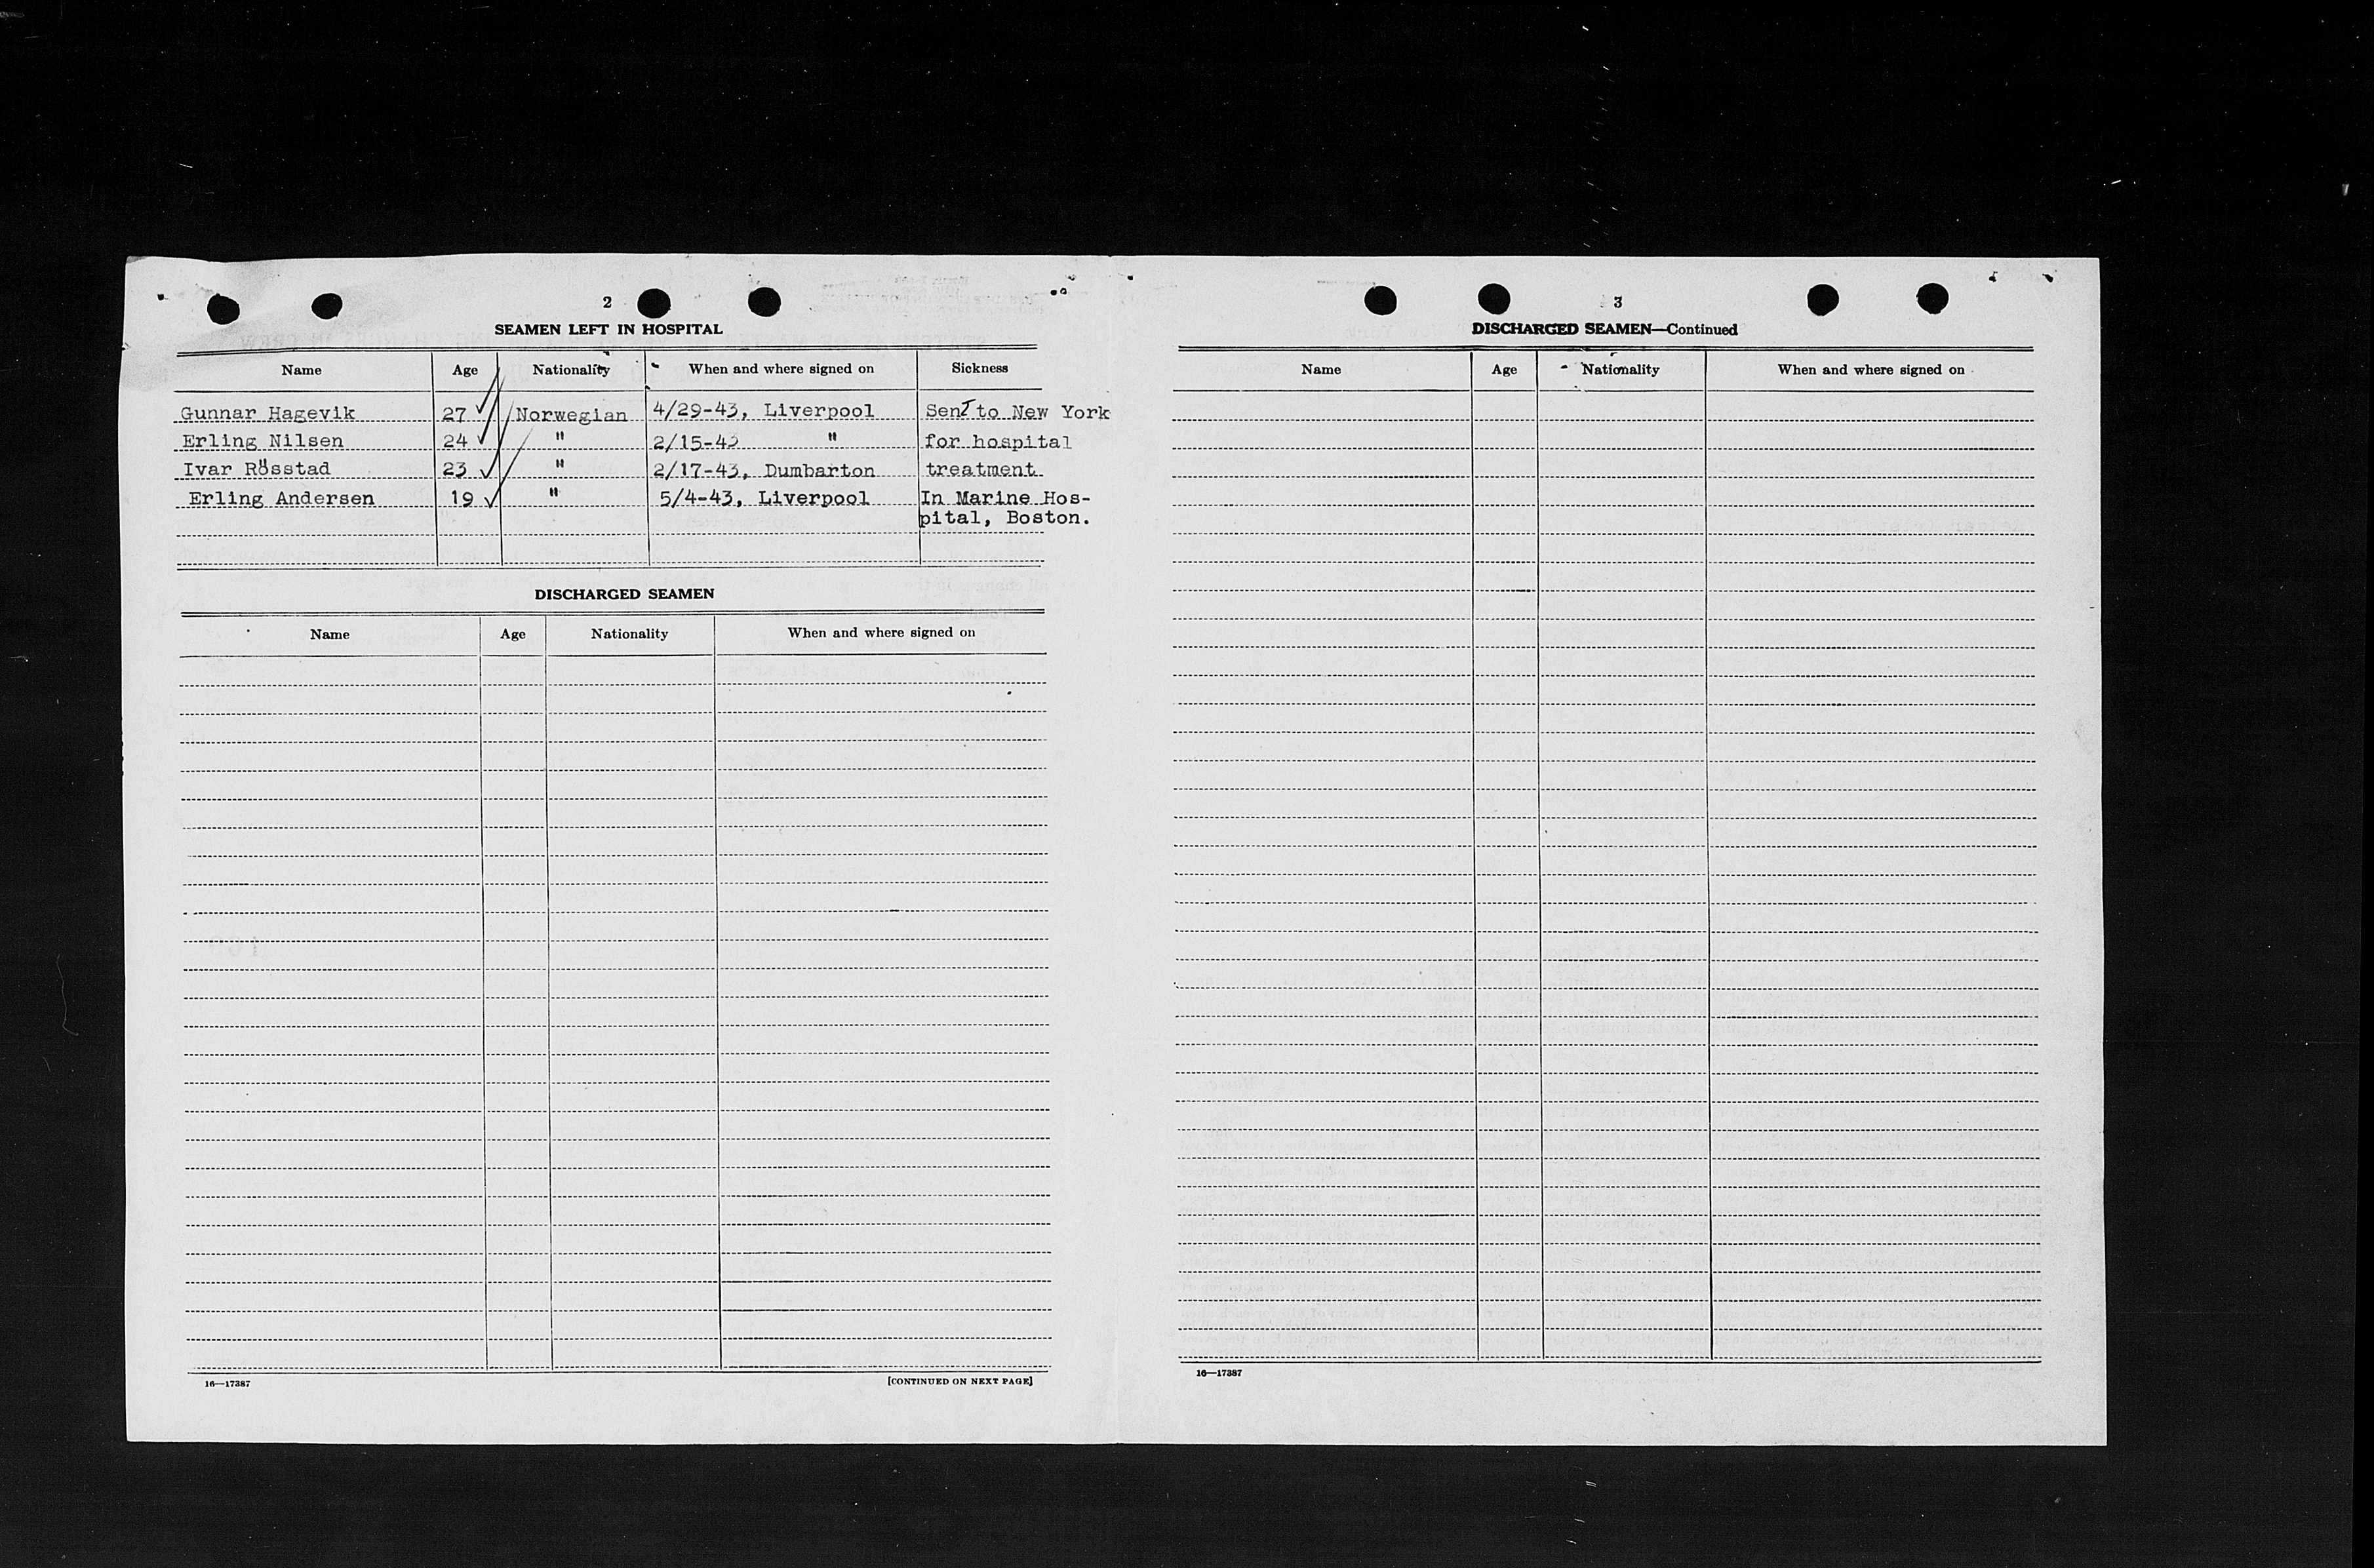 2
SEAMEN LEFT IN HOSPITAL
Name Age Nationality When and where signed on Sickness
Gunnar Hagevik 27 ✓ Norwegian 4/29-43, Liverpool Sent to New York
Erling Nilsen 24 ✓ " 2/15-42 " for hospital
Ivar Rösstad 23 ✓ " 2/17-43, Dumbarton treatment
Erling Andersen 19 ✓ " 5/4-43, Liverpool In Marine Hos-
pital, Boston.
DISCHARGED SEAMEN
Name Age Nationality When and where signed on
16—17387 [CONTINUED ON NEXT PAGE]
3
DISCHARGED SEAMEN—Continued
Name Age Nationality When and where signed on
16—17387